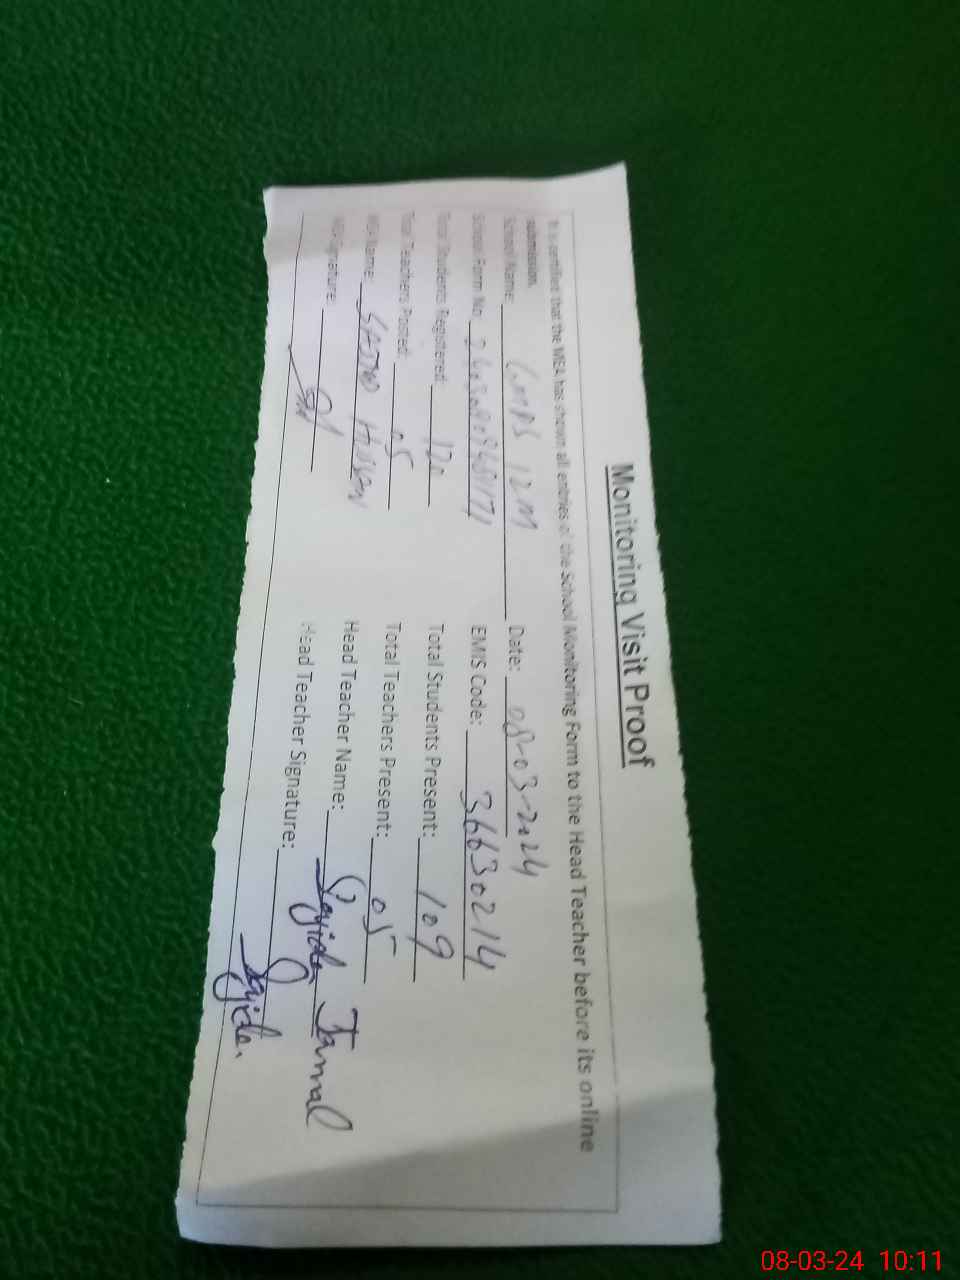 Monitoring Visit Proof
It is certified that the MEA has shown all entries of the School Monitoring Form to the Head Teacher before its online
submission.
School Name: 12M Date: 08-03-2024
School Form No. EMIS Code: 36630214
Total Students Registered: 120 Total Students Present: 109
Total Teachers Posted: 05 Total Teachers Present: 05
MEA Name: Head Teacher Name: Sajida Jamal
MEA Signature: Head Teacher Signature: Sajida
08-03-24 10:11